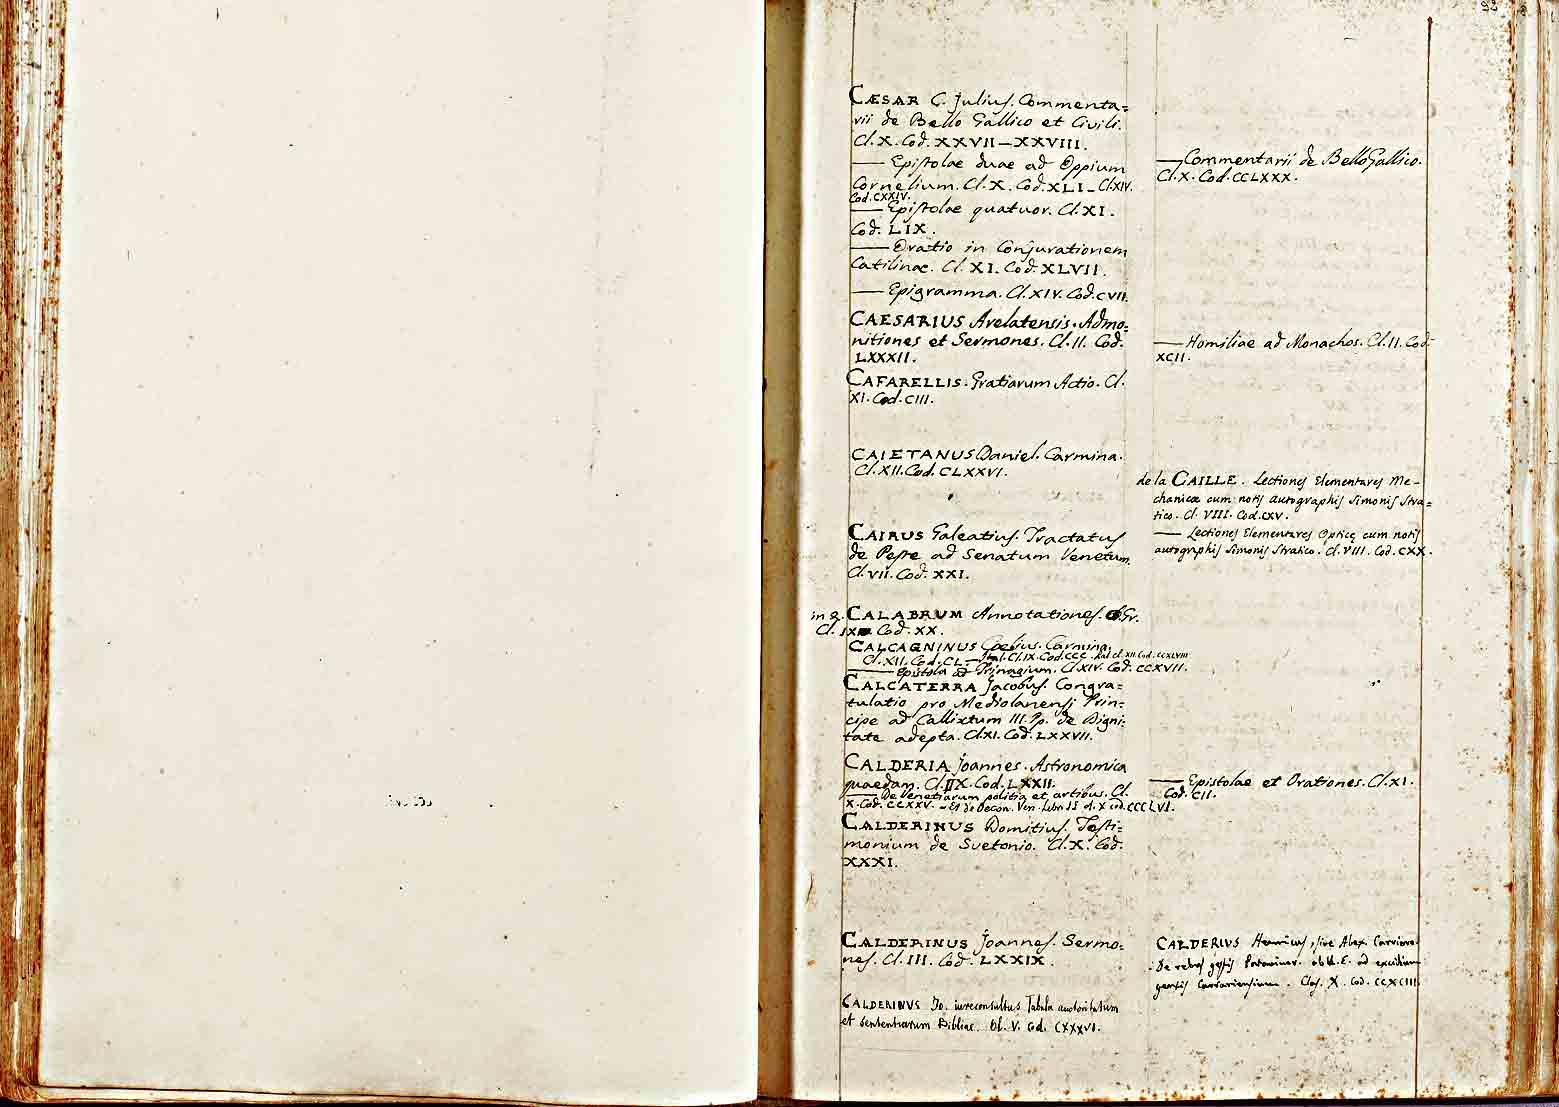 CÆSAR C. Julius. Commenta=
rii de Bello Gallico et Civili.
Cl. X. Cod. XXVII—XXVIII.
— Epistolae duae ad Oppium
Cornelium. Cl. X. Cod. XLI — Cl. XIV.
Cod. CXXIV.
— Epistolae quatuor. Cl. XI.
Cod. LIX.
— Oratio in Conjurationem
Catilinae. Cl. XI. Cod. XLVII.
— Epigramma. Cl. XIV. Cod. CVII.
CAESARIUS Arelatensis. Admo=
nitiones et Sermones. Cl. II. Cod.
LXXXII.
CAFARELLIS. Gratiarum Actio. Cl.
XI. Cod. CIII.
CAIETANUS Daniel. Carmina.
Cl. XII. Cod. CLXXVI.
CAIRUS Galeatius. Tractatus
de Peste ad Senatum Venetum.
Cl. VII. Cod. XXI.
in 2. CALABRUM Annotationes. Gr.
Cl. Cod. XX.
CALCAGNINUS Coelius. Carmina.
Cl. XII. Cod. CL — Ital. Cl. IX. Cod. CCC. Lat. cl. XII. Cod. CCXLVIII
— Epistola ad Trinagium. Cl. XIV. Cod. CCXVII.
CALCATERRA Jacobus. Congra=
tulatio pro Mediolanensi Prin=
cipe ad Callixtum III. Pp. de Digni=
tate adepta. Cl. XI. Cod. LXXVII.
CALDERIA Joannes. Astronomica
quaedam. Cl. IIX. Cod. LXXII.
— De Venetiarum politia et artibus. Cl.
X. Cod. CCXXV. — Et de Oecon. Ven. Libri II cl. X cod. CCCLVI.
CALDERINUS Domitius. Testi=
monium de Svetonio. Cl. X. Cod.
XXXI.
CALDERINUS Joannes. Sermo=
nes. Cl. III. Cod. LXXIX.
CALDERINUS Jo. iureconsultus Tabula auctoritatum
et sententiarum Bibliae. Cl. V. Cod. CXXXVI.
— Commentarii de Bello Gallico.
Cl. X. Cod. CCLXXX.
— Homiliae ad Monachos. Cl. II. Cod.
XCII.
de la CAILLE. Lectiones Elementares Me-
chanicæ cum notis autographis Simonis Stra=
tico. Cl. VIII. Cod. CXV.
— Lectiones Elementares Opticę cum notis
autographis Simonis Stratico. Cl. VIII. Cod. CXX.
— Epistolae et Orationes. Cl. XI.
Cod. CII.
CALDERIUS Henricus, sive Alex. Carriero
De rebus gestis Patavinor. ab U. E. ad excidium
gentis Carrariensium. Clas. X. Cod. CCXCIII.